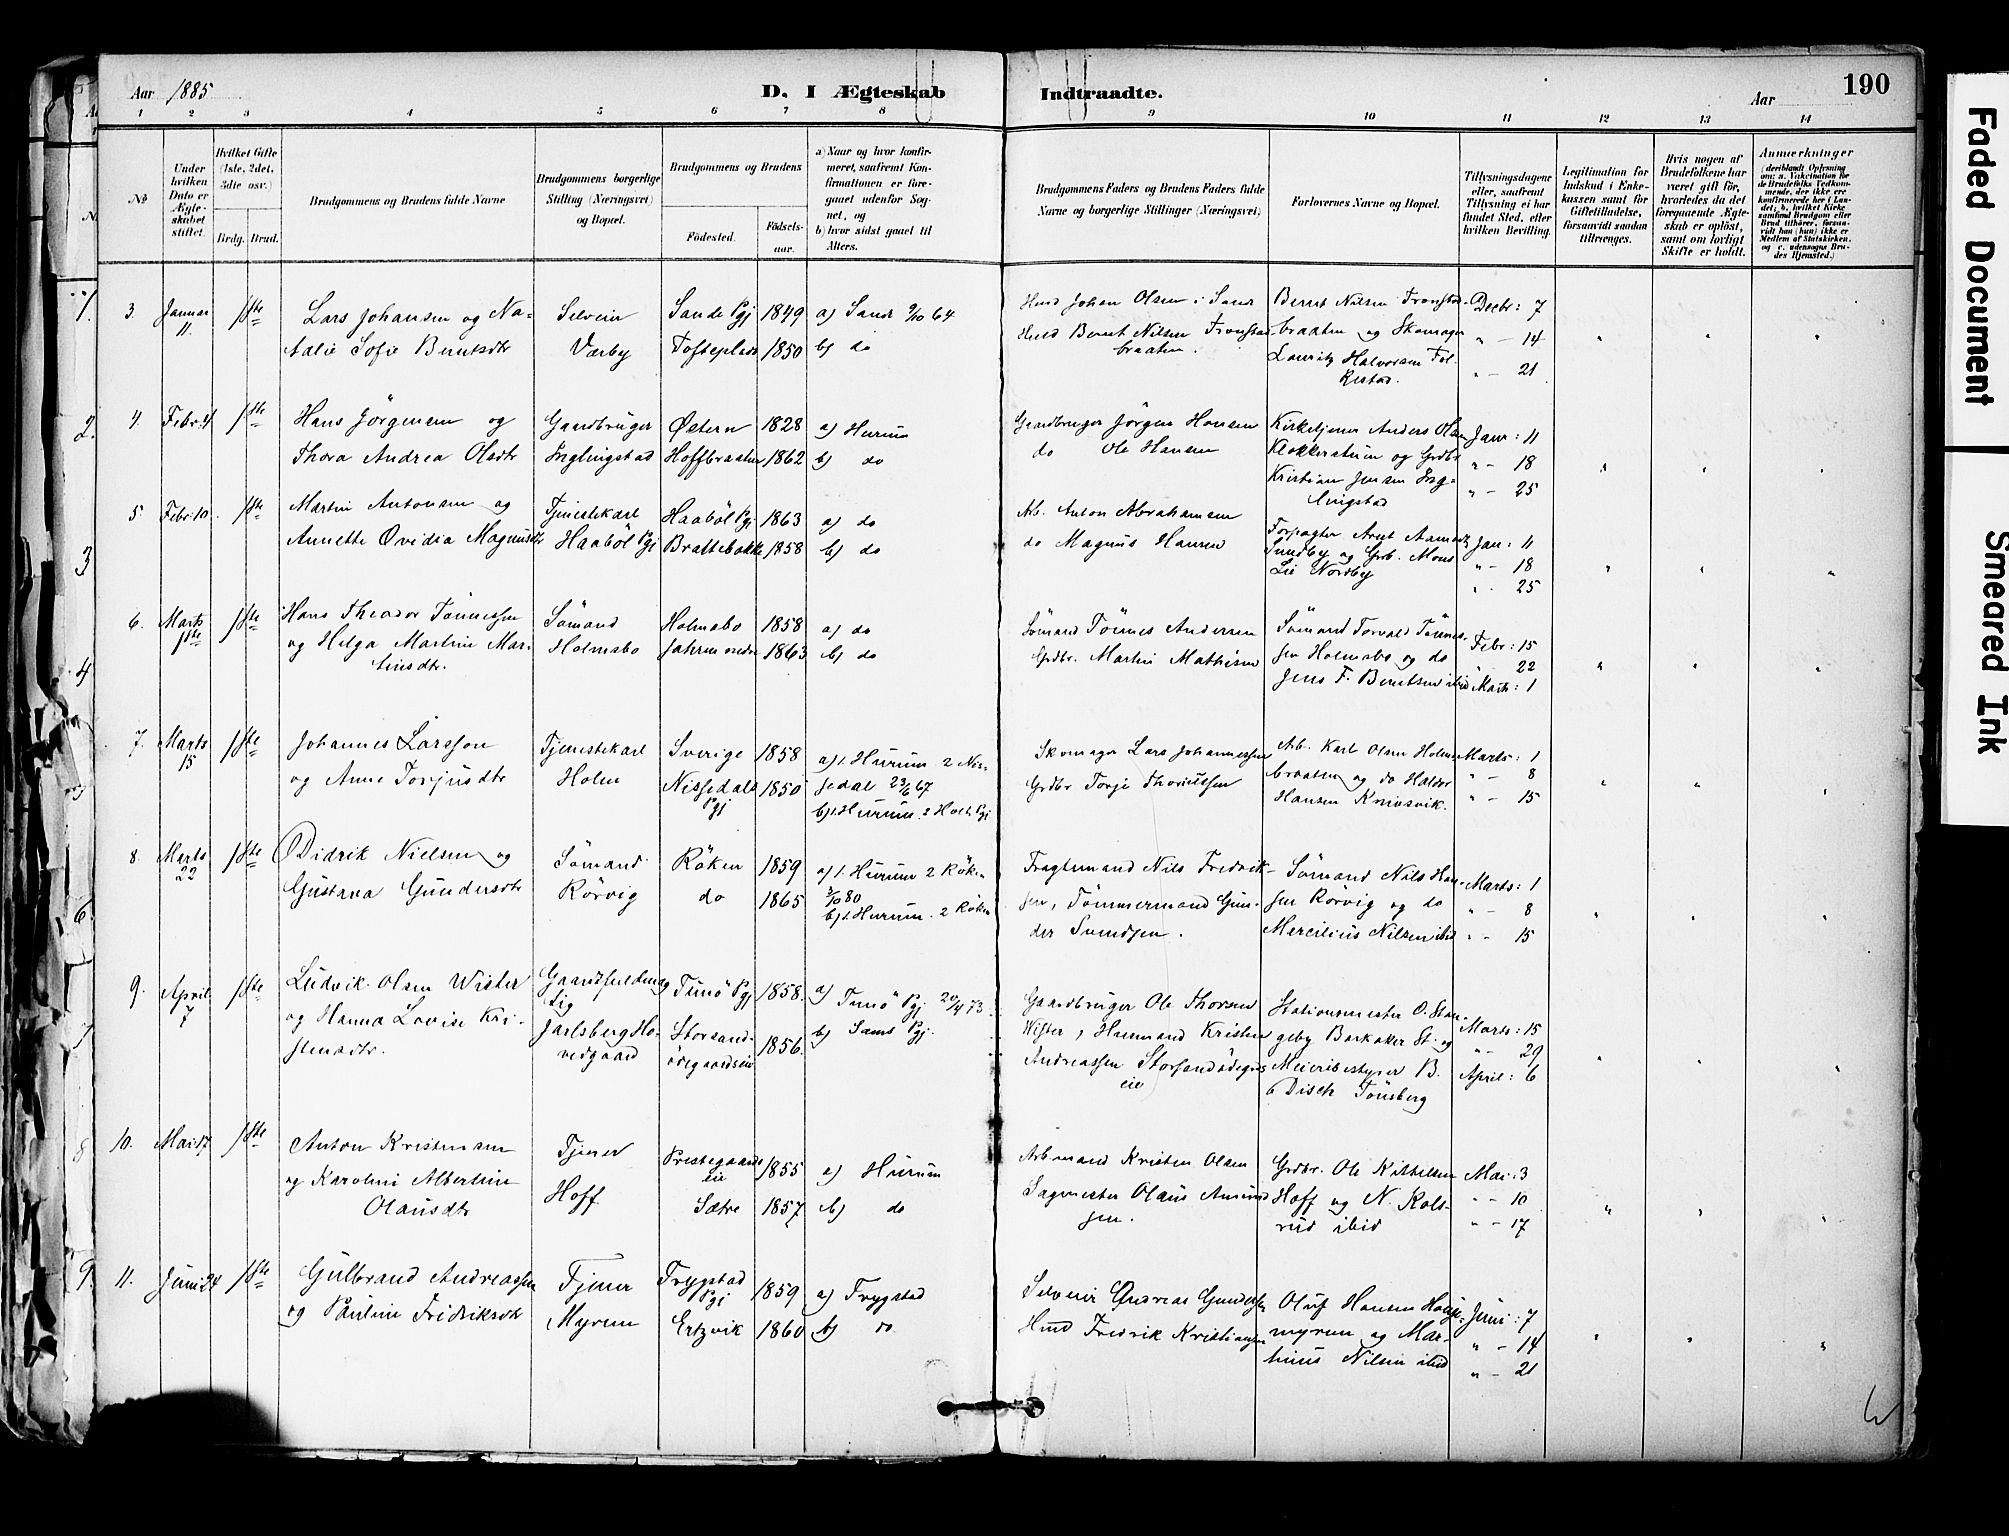 Aar 1885
D. I Ægteskab
Indtraadte.
Aar
190
1 2 3 4 5 6 7 8 9 10 11 12 13 14
No
Under hvilken Dato er Ægteskabet stiftet.
Hvilket Gifte (1ste, 2det, 3dte osv.)
Brdg. Brud.
Brudgommens og Brudens fulde Navne
Brudgommens borgerlige Stilling (Næringsvei) og Bopæl.
Brudgommens og Brudens
Fødested.
Fødselsaar.
a) Naar og hvor konfirmeret, saafremt Konfirmationen er foregaaet udenfor Sognet, og
b) hvor sidst gaaet til Alters.
Brudgommens Faders og Brudens Faders fulde Navne og borgerlige Stillinger (Næringsvei)
Forlovernes Navne og Bopæl.
Tillysningsdagene eller, saafremt Tillysning ei har fundet Sted, efter hvilken Bevilling.
Legitimation for Indskud i Enkekassen samt for Giftetilladelse, forsaavidt saadan tiltrænges.
Hvis nogen af Brudefolkene har været gift før, hvorledes da det foregaaende Ægteskab er opløst, samt om lovligt Skifte er holdt.
Anmærkninger
(deriblandt Oplysning om: a. Vakcination for de Brudefolks Vedkommende, der ikke ere konfirmerede her i Landet; b. hvilket Kirkesamfund Brudgom eller Brud tilhører, forsaavidt han (hun) ikke er Medlem af Statskirken, og c. udensogns Brudes Hjemsted.)
3. Januar 11. 1ste
Lars Johansen og Na-
talie Sofie Berntsdtr
Selveier
Værby
Sande Pgj 1849
Tofteplads 1850
a) Sande 9/10 64
b) do
Husmd Johan Olsen i Sande
Husmd Bernt Nilsen Tronstad-
braaten.
Bernt Nilsen Tronstad-
braaten og Skomager
Lauritz Halvorsen Fol-
kestad.
Decbr: 7
" - 14
" - 21
4. Febr. 4 1ste
Hans Jörgensen og
Thora Andrea Olsdtr
Gaardbruger
Inglingstad
Østern 1828
Hoffbraaten 1862
a) Hurum
b) do
Gaardbruger Jörgen Hansen
do Ole Hansen
Kirketjener Anders Olsen
Klokkerstuen og Grdbr
Kristian Jensen Ing-
lingstad
Janr: 11
" - 18
" - 25
5. Febr. 10. 1ste
Martin Antonsen og
Annette Ovidia Magnusdtr
Tjenestekarl
Haaböl Pgj
Haaböl Pgj 1863
Brattebakke 1858
a) do
b) do
Arb. Anton Abrahamsen
do Magnus Hansen
Forpagter Arnt Aamodt
Sundby og Grb. Mons
Lie Nordby
Jan: 11
" - 18
" - 25
6. Marts 1ste 1ste
Hans Theodor Tönnessen
og Helga Martine Mar-
tinsdtr.
Sömand
Holmsbo
Holmsbo 1858
Jahren nedre 1863
a) do
b) do
Sömand Tönnes Andersen
Grdbr. Martin Mathisen
Sömand Torvald Tönnes-
sen Holmsbo og do
Jens F. Berntsen ibid
Febr: 15
" 22
Marts: 1
7. Marts 15 1ste
Johannes Larsson
og Anne Torjusdtr
Tjenestekarl
Holm
Sverige 1858
Nissedals Pgj 1850
a) 1. Hurum 2 Nis-
sedal 23/6 67
b) 1. Hurum. 2 Holt Pgj
Skomager Lars Johannessen
Grdbr Torje Thorsussen
Arb. Karl Olsen Holms-
braaten og do Haldor
Hansen Knivsvik.
Marts: 1
" - 8
" - 15
8. Marts 22 1ste
Didrik Nielsen og
Gustava Gundersdtr
Sömand
Rörvig
Röken 1859
do 1865
a) 1. Hurum 2 Röken
3/10 80
b) 1. Hurum. 2 Röken
Fragtemand Nils Fredrik-
sen, Tömmermand Gun-
der Svendsen.
Sömand Nils Han-
sen Rörvig og do
Mercilius Nilsen ibid
Marts: 1
" - 8
" - 15
9. April 7 1ste
Ludvik Olsen Wister
og Hanna Lovise Kri-
stensdtr.
Gaardsfuldmæg
tig
Jarlsberg Ho-
vedgaard
Tunö Pgj 1858.
Storsand-
ödegaardseie 1856.
a) Tunö Pgj 20/4 73.
b) Sems Pgj.
Gaardbruger Ole Thorsen
Wister, Husmand Kristen
Andreassen Storsandödegrds
eie
Stationsmester O. Stan-
geby Barkaker St. og
Meieribestyrer B.
Disch Tönsberg
Marts: 15
" - 29
April: 6
10. Mai 17 1ste
Anton Kristensen
og Karoline Albertine
Olausdtr
Tjener
Hoff
Prestegaards
eie 1855
Sætre 1857
a) Hurum
b) do
Arbmand Kristen Olsen
Sagmester Olaus Amund-
sen.
Grdbr. Ole Kittelsen
Hoff og N. Rols-
rud ibid
Mai: 3
" - 10
" - 17
11. Juni 24 1ste
Gulbrand Andreassen
og Pauline Fredriksdtr
Tjener
Myren
Trygstad Pgj 1859
Ertzvik 1860
a) Trygstad
b) do
Selveier Andreas Gundersen
Husmd Fredrik Kristiansen
Oluf Hansen Hauge-
myren og Mar-
tinus Nilsen ibid
Juni: 7
" - 14
" - 21
1. 2. 3 4 5 6. 7 8 9.
Faded Document
Smeared Ink